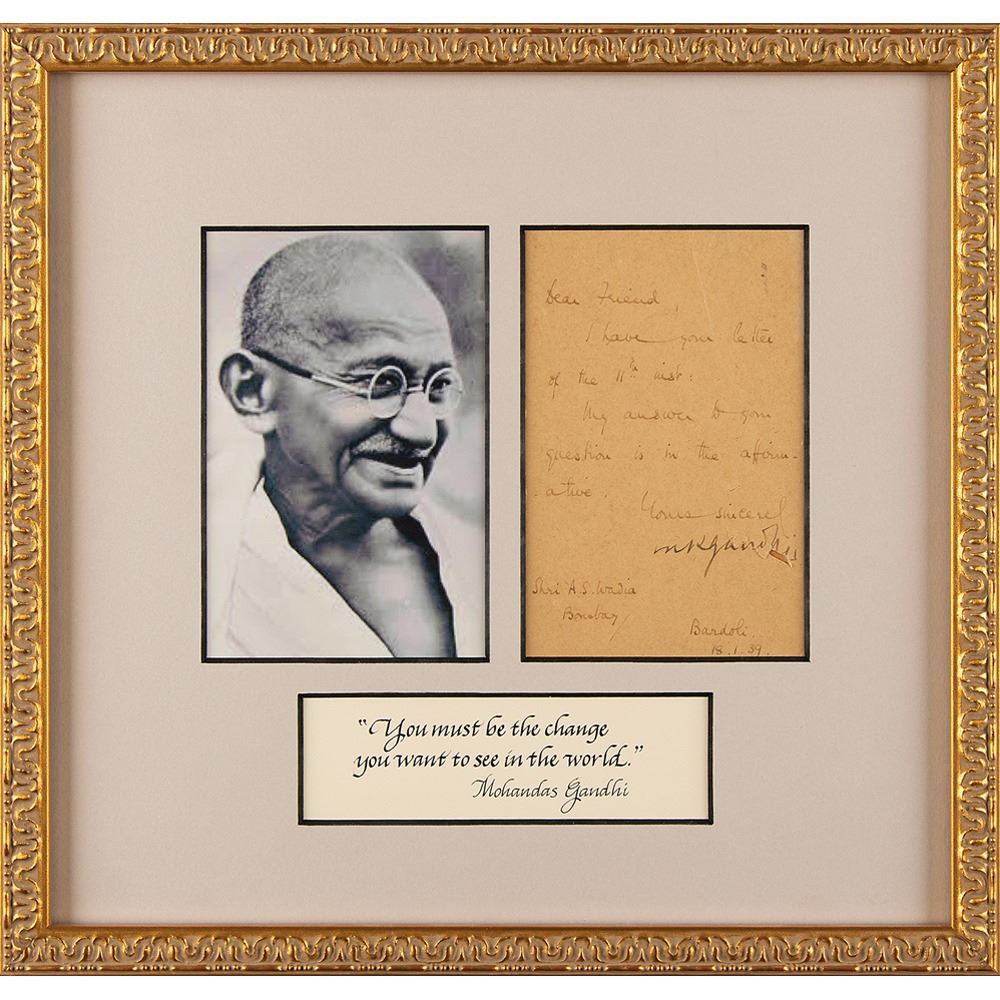 Dear Friend,
I have your letter
of the 11th inst:
My answer to your
question is in the affirm-
-ative.
Yours sincerely
MKGandhi
Shri A.S. Wadia
Bombay
Bardoli.
18.1.39.
“You must be the change
you want to see in the world.”
Mohandas Gandhi